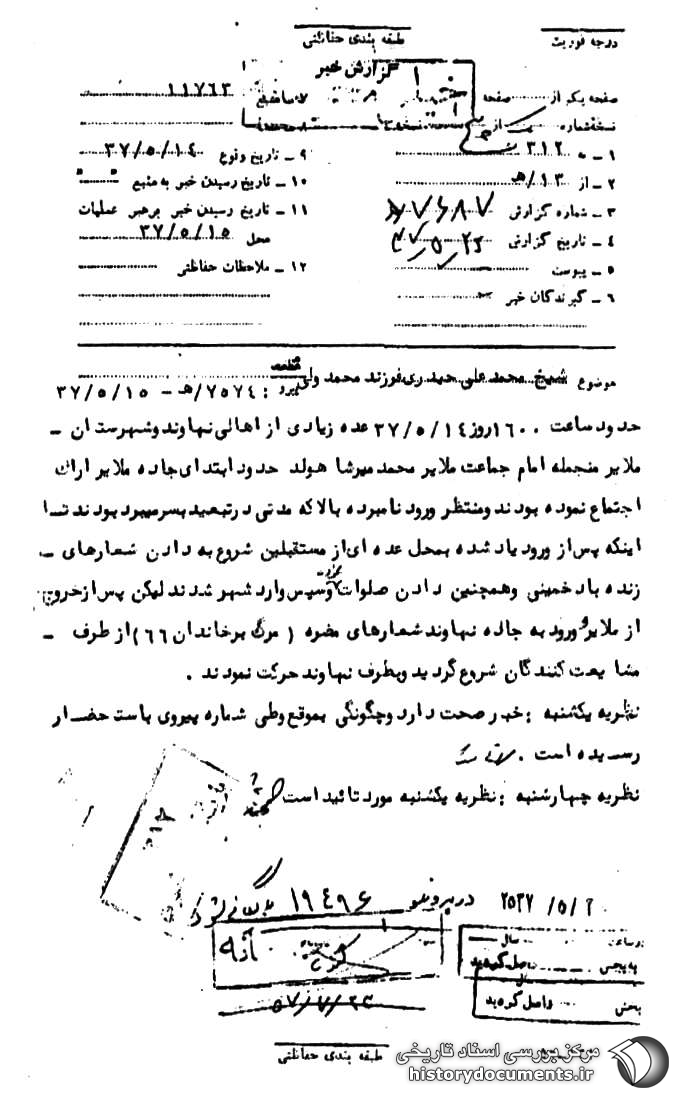 درجه فوریت
طبقه بندی حفاظتی
گزارش خبر
صفحه یکم از صفحه
نسخه شماره از
۱ – به ۳۱۲
۲ – از ۱۳/هـ
۳ – شماره گزارش
۴ – تاریخ گزارش
۵ – پیوست
۶ – گیرندگان خبر
۱۱۷۶۳
۹ – تاریخ وقوع ۳۷/۵/۱۴
۱۰ – تاریخ رسیدن خبر به منبع " "
۱۱ – تاریخ رسیدن خبر برهبر عملیات
محل ۳۷/۵/۱۵
۱۲ – ملاحظات حفاظتی
موضوع شیخ محمد علی حیدری فرزند محمد ولی
پیرو : ۷۵۷۴/هـ – ۳۷/۵/۱۵
حدود ساعت ۱۶۰۰ روز ۳۷/۵/۱۴ عده زیادی از اهالی نهاوند و شهرستان –
ملایر منجمله امام جماعت ملایر محمد میرشا هولد حدود ابتدای جاده ملایر اراک
اجتماع نموده بودند و منتظر ورود نامبرده بالا که مدتی در تبعید بسر میبرد بودند تا
اینکه پس از ورود یاد شده بمحل عده ای از مستقبلین شروع به دادن شعارهای –
زنده باد خمینی و همچنین دادن صلوات نمودند و سپس وارد شهر شدند لیکن پس از خروج
از ملایر و ورود به جاده نهاوند شعارهای مضره ( مرگ بر خاندان ۶۶ ) از طرف –
مشا یعت کنندگان شروع گردید و بطرف نهاوند حرکت نمودند .
نظریه یکشنبه : خبر صحت دارد و چگونگی بموقع وطی شماره پیروی باستحضار
رسیده است .
نظریه چهارشنبه : نظریه یکشنبه مورد تائید است
۲۵۳۷/۵/۲
در پرونده ۱۹۴۹۶
سال
واصل گردید
بخش واصل گردید
۵۷/۷/۲۳
طبقه بندی حفاظتی
مرکز بررسی اسناد تاریخی
historydocuments.ir